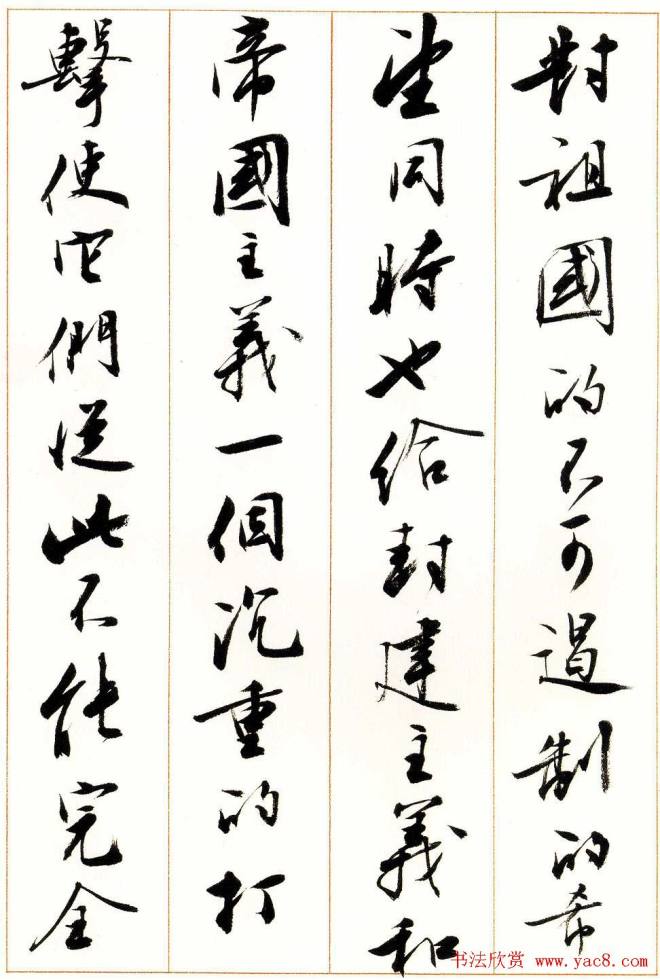 對祖國的不可遏制的希
望同時也給封建主義和
帝國主義一個沉重的打
擊使它們從此不能完全
书法欣赏 www.yac8.com